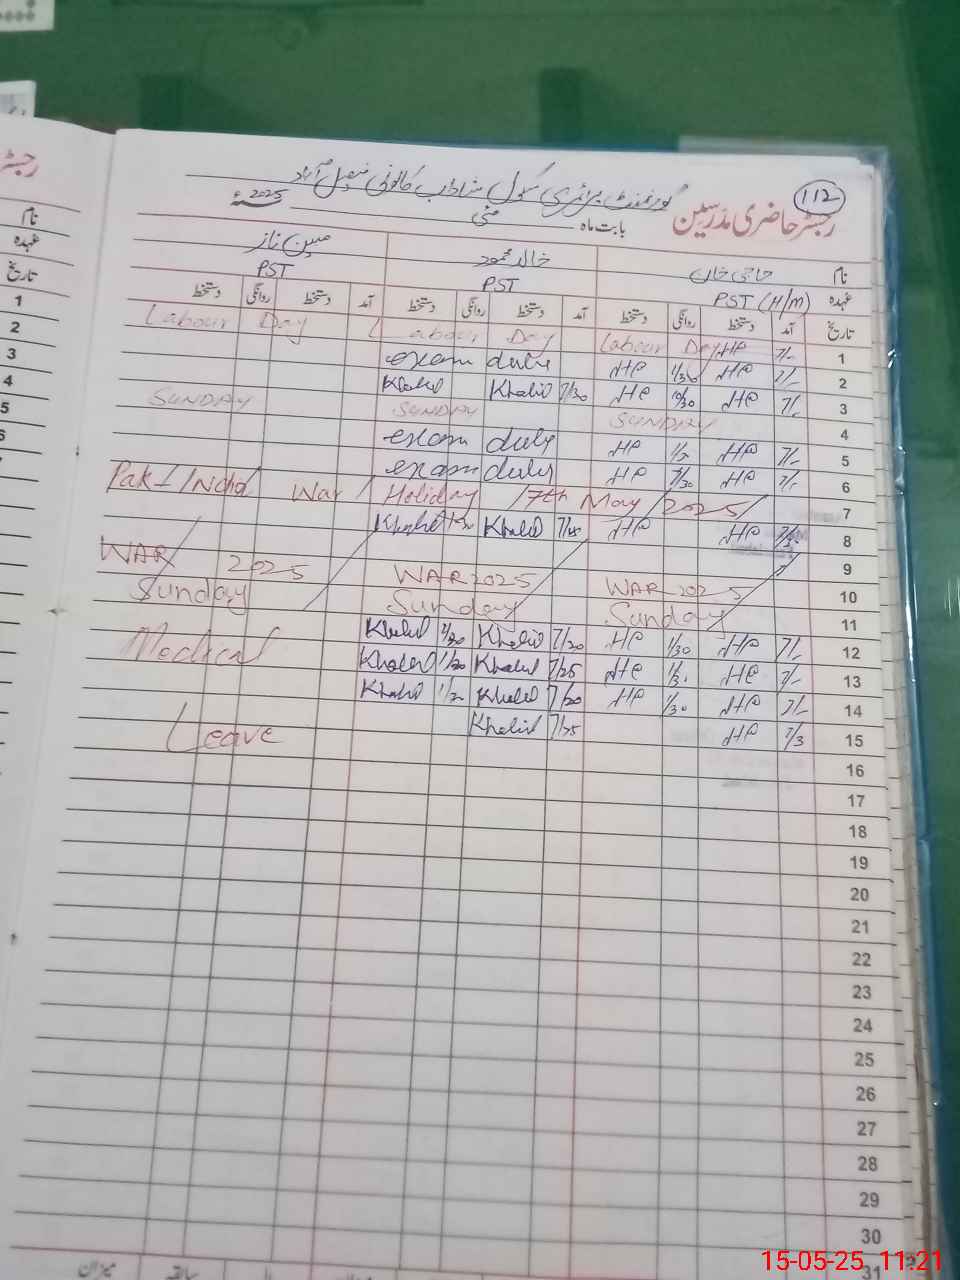 112
گورنمنٹ پرائمری سکول شاداب کالونی فیصل آباد
رجسٹر حاضری مدرسین بابت ماہ مئی 2025ء
نام حاجی خان خالد محمود مبین ناز
عہدہ PST (H/M) PST PST
تاریخ آمد دستخط روانگی دستخط آمد دستخط روانگی دستخط آمد دستخط روانگی دستخط
Labour Day Labour Day Labour Day HP 7/- 1
exam duty HP 1/30 HP 7/- 2
Khalid Khalid 7/30 HP HP 7/- 3
SUNDAY SUNDAY SUNDAY 4
exam duty HP HP 7/- 5
exam duty HP HP 7/- 6
Pak-India War / Holiday / 7th May / 2025 / 7
Khalid Khalid 7/25 HP HP 8
9
WAR 2025 WAR 2025 WAR 2025 10
Sunday Sunday Sunday 11
Khalid Khalid 7/20 HP 1/30 HP 7/- 12
Medical Khalid 1/20 Khalid 7/25 HP HP 7/- 13
Khalid Khalid 7/20 HP 1/30 HP 7/- 14
Leave Khalid 7/25 HP 7/3 15
16
17
18
19
20
21
22
23
24
25
26
27
28
29
30
31
میزان سابقہ
رجسٹر
نام
عہدہ
تاریخ
1
2
3
4
5
6
15-05-25 11:21